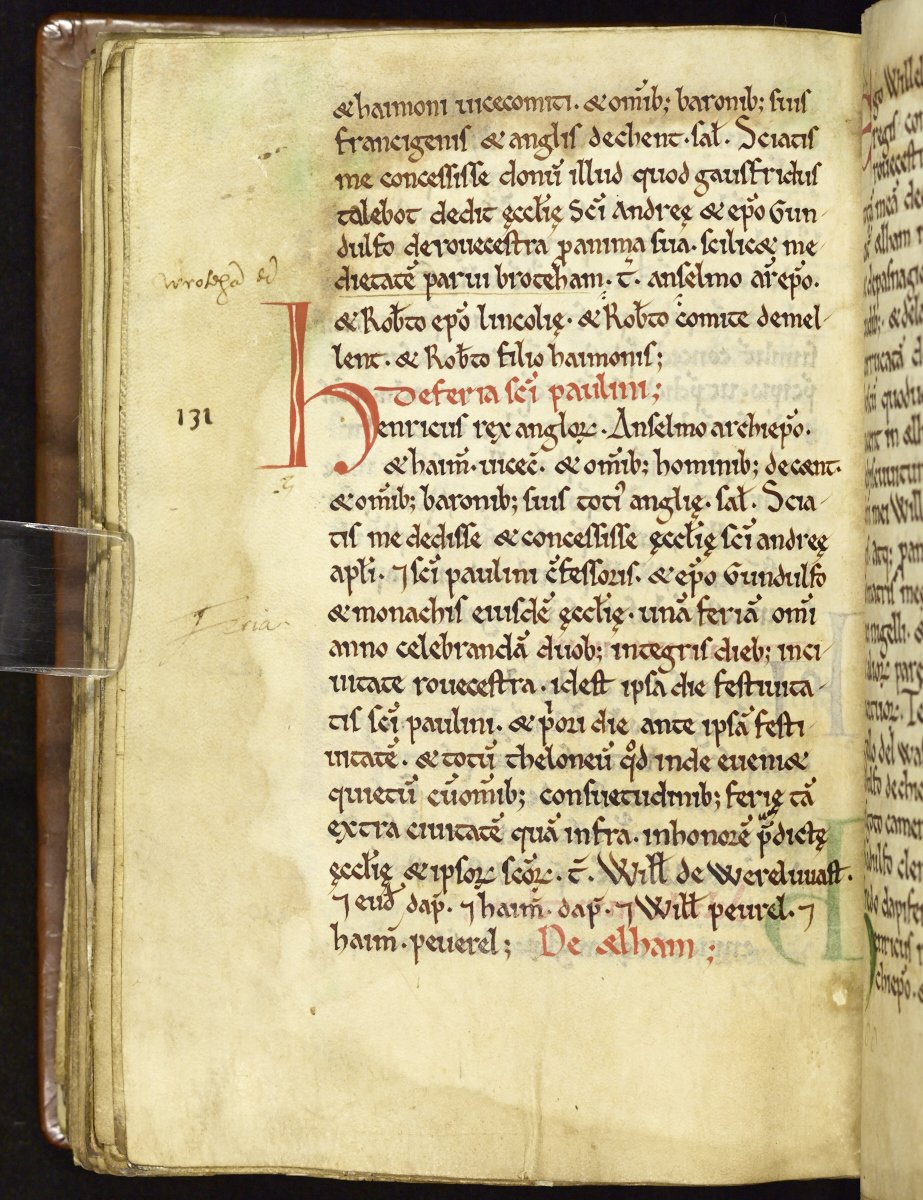 & haimoni uicecomiti. & om̄ib; baronib; suis
francigenis & anglis dechent. sał. Sciatis
me concessisse donū illud quod gausfridus
talebot dedit ęccłię Sc̄i Andreę & ep̄o Gun-
dulfo de rouecestra p anima sua. scilic& me-
dietatē parui broteham. T̄. anselmo ar̄ep̄o.
& Rob̄to ep̄o lincolię. & Rob̄to comite demel-
lent. & Rob̄to filio haimonis;
De feria sc̄i paulini;
131
Henricus rex angloꝝ. Anselmo archiep̄o.
& haim̄. uicec̄. & om̄ib; hominib; de cænt.
& om̄ib; baronib; suis toti᾽ anglię. sał. Scia-
tis me dedisse & concessisse ęccłię sc̄i andreę
apłi. ⁊ sc̄i paulini c̄fessoris. & ep̄o Gundulfo
& monachis eiusdē ęccłię. unā feriā omī
Feria
anno celebrandā duob; integris dieb; in ci-
uitate rouecestra. idest ipsa die festiuita-
tis sc̄i paulini. & p̄ori die ante ipsā festi
uitatē. & totū theloneū qd̄ inde eueni&
quietū cū om̄ib; consuetudinib; ferię tā
extra ciuitatē quā infra. in honorē p̄dictę
ęccłię & ipsoꝝ sc̄oꝝ. T̄. Wilł de Wereluuast.
⁊ eud̄ dap̄. ⁊ haim̄. dap̄. ⁊ Wilł peurel. ⁊
haim̄. peuerel; De ælham;